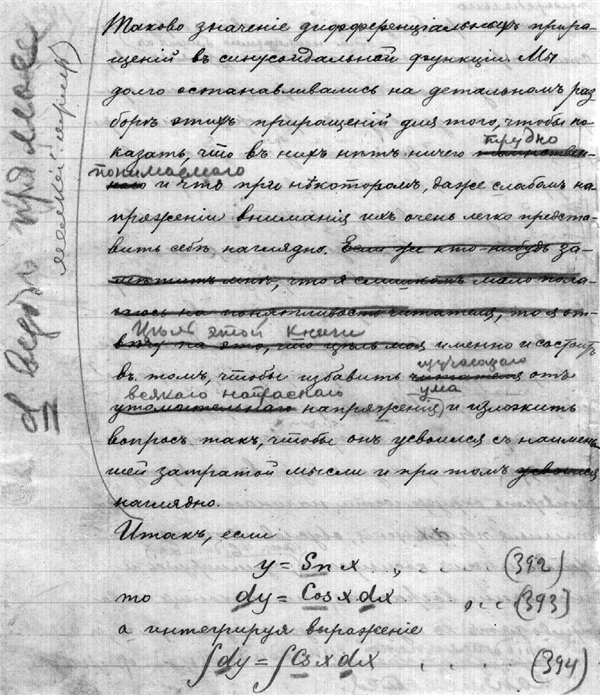 Таково значеніе дифференціальныхъ прира-
щеній въ синусоидальной функціи. Мы
долго останавливались на детальномъ раз
борѣ этихъ приращеній для того, чтобы по
казать, что въ нихъ нѣтъ ничего трудно
таинствен-
понимаемаго
наго и что при нѣкоторомъ, даже слабомъ на-
пряженіи вниманія ихъ очень легко предста-
вить себѣ наглядно. Если же кто-нибудь за-
мѣтитъ мнѣ, что я слишкомъ мало пола-
гаюсь на понятливость читателя, то я от-
Цѣль этой книги
вѣчу на это, что цѣль моя именно и состоитъ
въ томъ, чтобы избавить учащагося
читателя отъ
всякаго напраснаго ума
утомительнаго напряженія и изложить
вопросъ такъ, чтобы онъ усвоился съ наимень
шей затратой мысли и при томъ
наглядно.
Итакъ, если
y = Sn x , (392)
то dy = Cos x dx . . . (393)
а интегрируя выраженіе
∫dy = ∫Cs x dx . . . . (394)